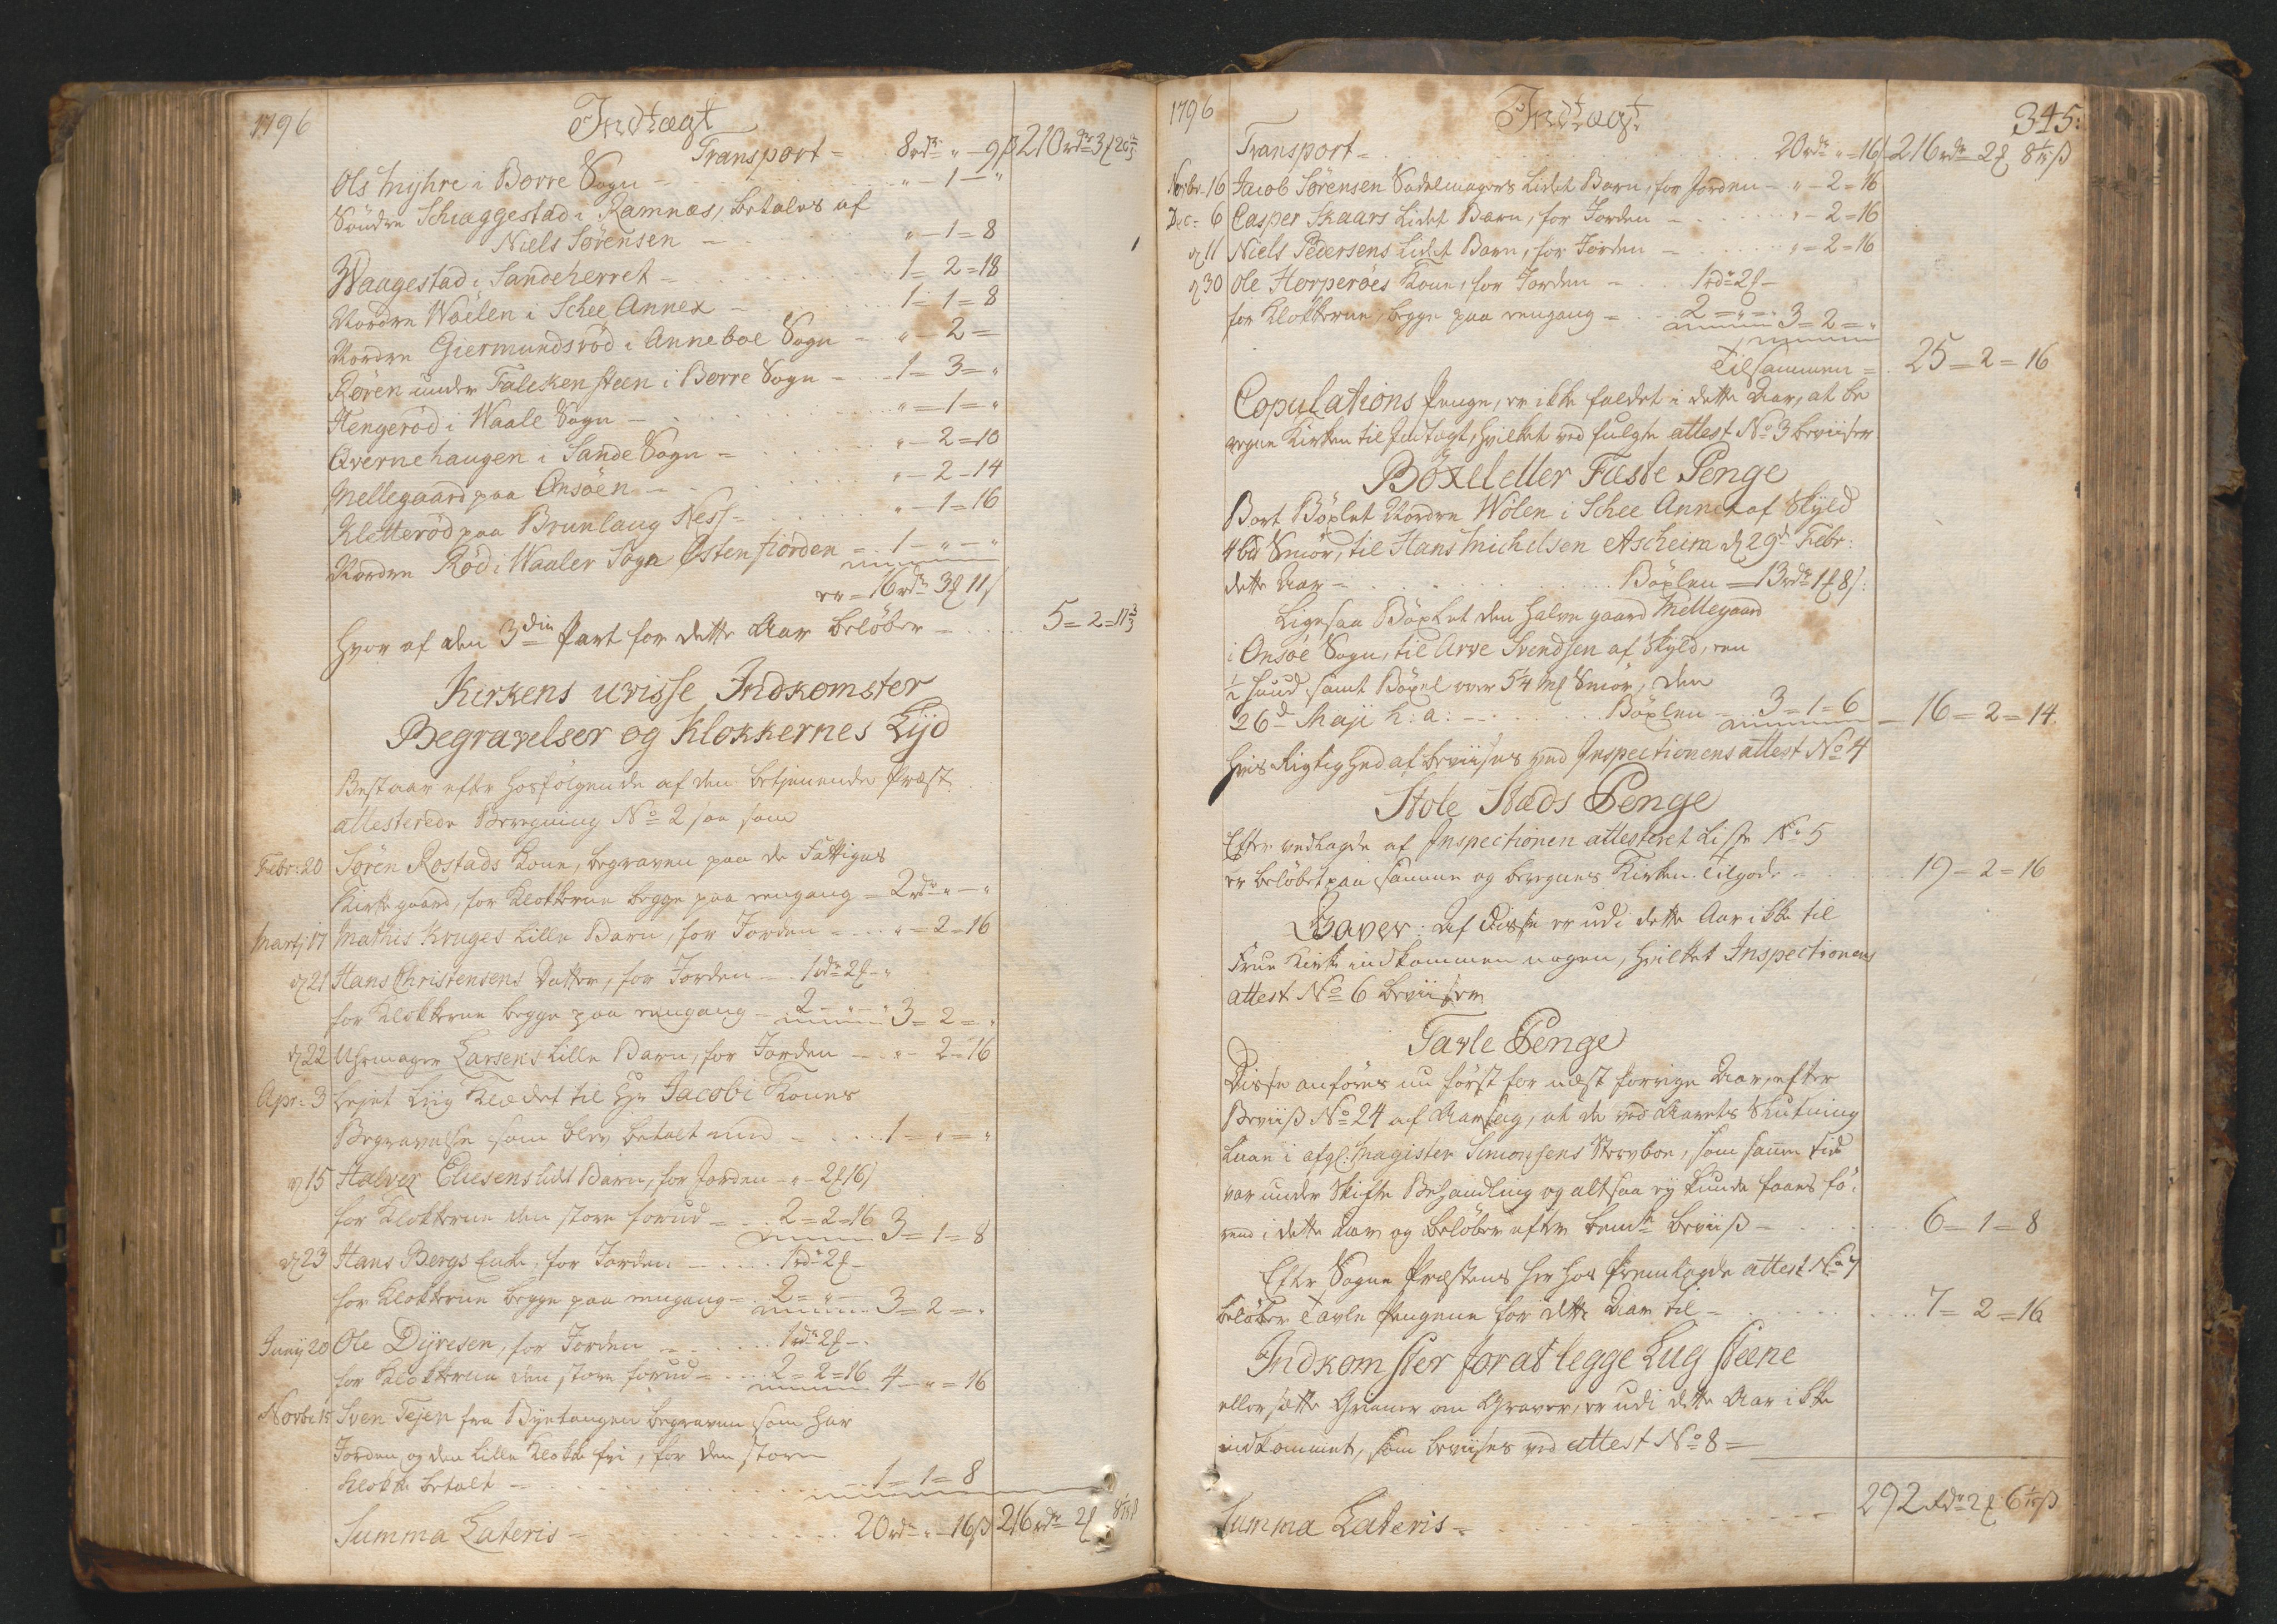 1796
Indtægt
Transport = 8 rdr „ — 9 ß 210 rdr 3
Ols Myhre i Borre Sogn — „ — 1 — „
Søndre Schiæggestad i Ramnæs, betales af
Niels Sørensen — „ — 1 = 8
Waagestad i Sandeherret — 1 = 2 = 18
Nordre Wøelen i Schee Annex — 1 = 1 = 8
Nordre Giermundsröd i Anneboe Sogn — „ — 2 =
Røren under Falckensteen i Borre Sogn — 1 = 3 = „
Hengeröd i Waale Sogn — „ = 1 = „
Qvernehaugen i Sande Sogn — „ — 2 = 10
Mellegaard paa Onsöen — „ — 2 — 14
Kletteröd paa Brunlaug Ness — „ — 1 = 16
Nordre Röd i Waaler Sogn Østenfiorden — 1 — „ — „
er = 16 rdr 3 11
hvor af den 3die Part for dette Aar beløber — 5 = 2 = 17
Kirkens uvisse Indkomster
Begravelser og Klokkernes Lÿd
Bestaar efter hosfølgende af den betjenende Præst
attesterede Beregning No 2 saa som
Febr: 20 Søren Rostads Kone, begraven paa de Fattiges
Kirkegaard, for Klokkerne begge paa eengang = 2 rdr „ — „
Martj 17 Mathis Kruges lille Barn, for Jorden — „ = 2 = 16
d 21 Hans Christensens Datter, for Jorden — 1 rdr 2 — „
for Klokkerne begge paa eengang — 2 — „ — „ 3 = 2 = „
d 22 Uhrmager Larsens lille Barn, for Jorden — „ — 2 = 16
Apr: 3 Lejet Liig Klædet til Hr Jacobi Kones
Begravelse som blev betalt med — 1 = „ = „
d 15 Halvor Eliesens lidet Barn, for Jorden — „ — 2 16
for Klokkerne den store forud — 2 = 2 = 16 3 = 1 = 8
d 23 Hans Bergs Enke, for Jorden — 1 rdr 2 —
for Klokkerne begge paa eengang — 2 = „ — 3 = 2 = „
Junÿ 20 Ole Dÿresen, for Jorden — 1 rdr 2 —
for Klokkerne den store forud — 2 = 2 = 16 4 — „ = 16
Novbr 15 Sven Tejen fra Byetangen begraven som har
Jorden og den lille Klokke fri, for den store
Klokke betalt — 1 = 1 = 8
Summa Lateris — 20 rdr „ — 16 ß 216 rdr 2
1796
Indtægt
345:
Transport — 20 rdr „ = 16 216 rdr 2 8 ß
Novbr. 16 Jacob Sørensen Sadelmagers lidet Barn, for Jorden — „ — 2 = 16
Dec: 6 Casper Skaars lidet Barn, for Jorden — „ — 2 = 16
d 11 Niels Pedersens lidet Barn, for Jorden — „ = 2 = 16
d 30 Ole Horperöes Kone, for Jorden — 1 rdr 2 —
for Klokkerne, begge paa eengang — 2 = „ = 3 = 2 = „
Tilsammen = 25 = 2 = 16
Copulations Penge, er ikke faldet i dette Aar, at be
regne Kirken til Indtægt, hvilket ved fulgte attest No 3 beviiser
Böxel eller Fæste Penge
Bort Böxlet Nordre Wölen i Schee Annex af Skyld
4 Smör, til Hans Michelsen Ascheim d 29d Febr:
dette Aar — Böxlen = 13 rdr 1 8
Ligesaa Böxlet den halve gaard Mellegaard
i Onsöe Sogn, til Arve Svendsen af Skyld, een
½ huud samt Böxel over 5¼ Smör, den
26d Maji h: a: — Böxlen — 3 = 1 = 6 — 16 = 2 = 14
hvis Rigtighed af beviises ved Inspectionens attest No 4
Stole Stads Penge
Efter vedlagde af Inspectionen attesteret Liste No 5
er beløbet paa samme og beregnes Kirken tilgode — 19 = 2 = 16
Gaver: af disse er udi dette Aar ikke til
Frue Kirke indkommen nogen, hvilket Inspectionens
attest No 6 beviiser
Tavle Penge
Disse anføres nu først for næst forrige Aar, efter
Beviiß No 24 af Aarsag, at de ved Aarets Slutning
laae i afgl: Magister Simonsens Stervboe, som samme tid
var under Skifte Behandling og altsaa ej kunde faaes fø-
rend i dette Aar og beløber efter bemte beviiß — 6 = 1 = 8
Efter Sogne Præstens her hos fremlagde attest No 7
beløber Tavle Pengene for dette Aar til — 7 = 2 = 16
Indkomster for at legge Liig Steene
eller sætte Griner om Graver, er udi dette Aar ikke
indkommet, som beviises ved attest No 8 =
Summa Lateris — 292 rdr 2 6 ß